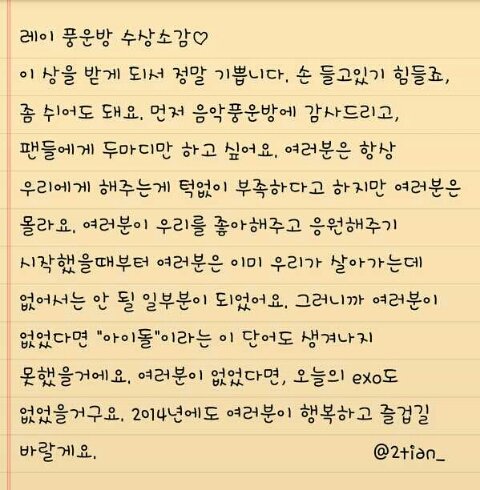 레이 풍운방 수상소감♡
이 상을 받게 되서 정말 기쁩니다. 손 들고있기 힘들죠,
좀 쉬어도 돼요. 먼저 음악풍운방에 감사드리고,
팬들에게 두마디만 하고 싶어요. 여러분은 항상
우리에게 해주는게 턱없이 부족하다고 하지만 여러분은
몰라요. 여러분이 우리를 좋아해주고 응원해주기
시작했을때부터 여러분은 이미 우리가 살아가는데
없어서는 안 될 일부분이 되었어요. 그러니까 여러분이
없었다면 "아이돌"이라는 이 단어도 생겨나지
못했을거에요. 여러분이 없었다면, 오늘의 exo도
없었을거구요. 2014년에도 여러분이 행복하고 즐겁길
바랄게요. @2tian_